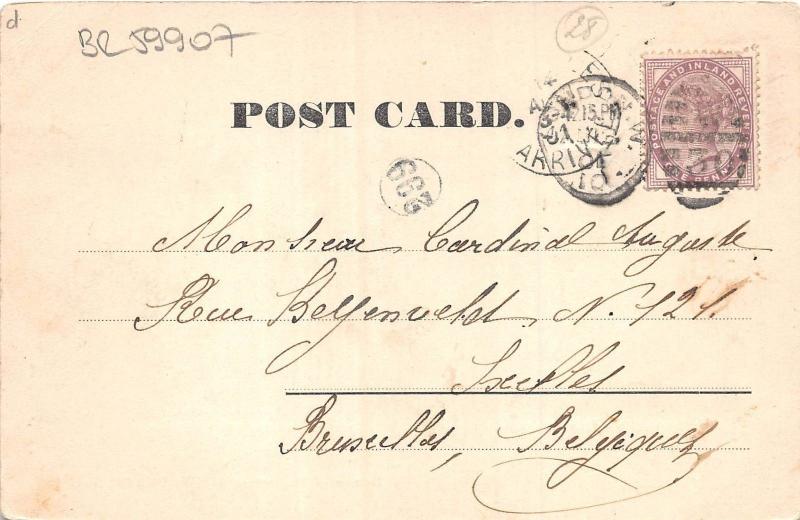 d
BR 59907
28
POST CARD.
POSTAGE AND INLAND REVENUE
ONE PENNY
ARRIVÉE
Monsieur Cardinal Auguste
Rue N. 121.
Ixelles
Bruxelles, Belgique